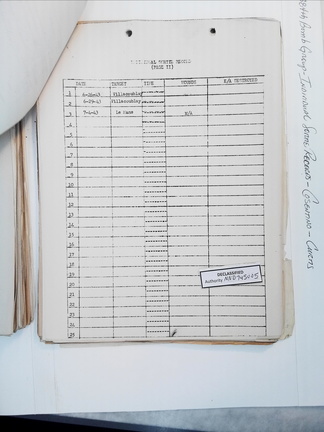 INDIVIDUAL SORTIE RECORD
(PART II)
DATE TARGET TIME RECORD E/A DESTROYED
1 6-26-43 Villacoublay
2 6-29-43 Villacoublay
3 7-4-43 Le Mans N/A
4
5
6
7
8
9
10
11
12
13
14
15
16
17
18
19
20
21
22
23
24
25
DECLASSIFIED
Authority NND745005
384th Bomb Group - Individual Sortie Records - Cosentino - Curtis